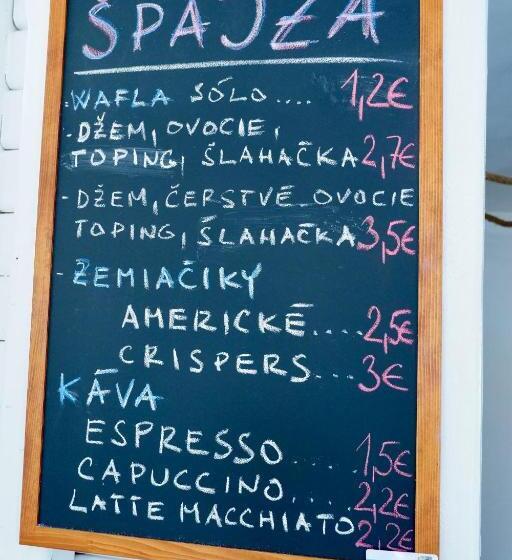 ŠPAJZA
- WAFLA SÓLO.... 1,2€
- DŽEM, OVOCIE,
TOPING, ŠLAHAČKA 2,7€
- DŽEM, ČERSTVÉ OVOCIE
TOPING, ŠLAHAČKA 3,5€
- ZEMIAČIKY
AMERICKÉ.... 2,5€
CRISPERS... 3€
KÁVA
ESPRESSO.... 1,5€
CAPUCCINO.... 2,2€
LATTE MACCHIATO 2,2€